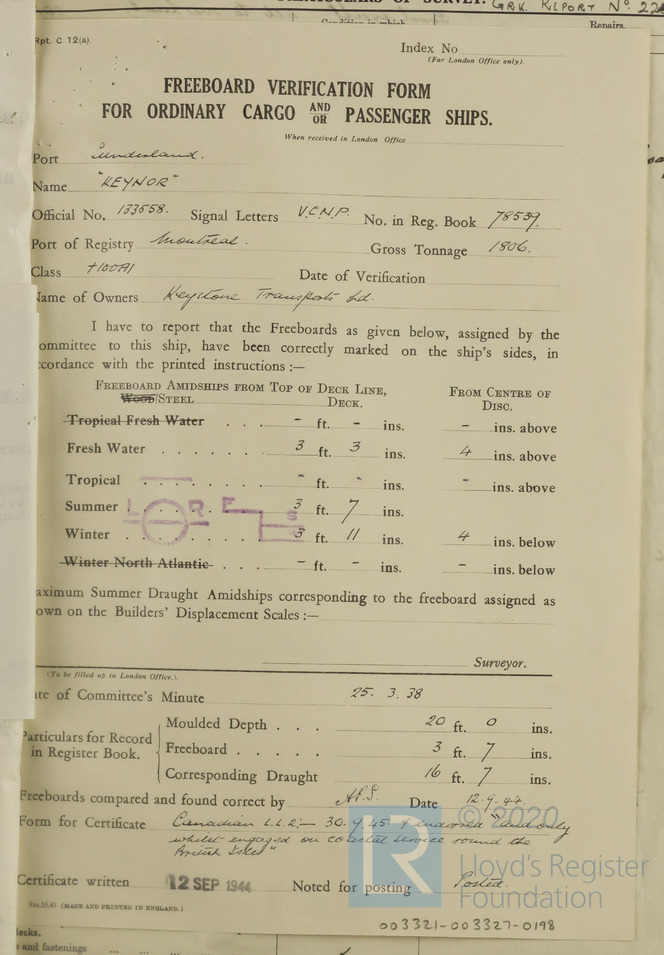 PARTICULARS OF SURVEY. GRK. REPORT No. 22
Condition in which
Repairs.
Rpt. C 12(a).
Index No
(For London Office only).
FREEBOARD VERIFICATION FORM
FOR ORDINARY CARGO AND/OR PASSENGER SHIPS.
When received in London Office
Port Sunderland.
Name "KEYNOR"
Official No. 133558. Signal Letters V.C.N.P. No. in Reg. Book 78539.
Port of Registry Montreal. Gross Tonnage 1806.
Class +100A1 Date of Verification
Name of Owners Keystone Transports Ld.
I have to report that the Freeboards as given below, assigned by the
ommittee to this ship, have been correctly marked on the ship's sides, in
ccordance with the printed instructions :—
FREEBOARD AMIDSHIPS FROM TOP OF DECK LINE, FROM CENTRE OF
WOOD/STEEL DECK. DISC.
Tropical Fresh Water . . . - ft. - ins. - ins. above
Fresh Water . . . . . . 3 ft. 3 ins. 4 ins. above
Tropical . . . . . . . - ft. - ins. - ins. above
Summer . . . . . . . 3 ft. 7 ins.
LORES
Winter . . . . . . . 3 ft. 11 ins. 4 ins. below
Winter North Atlantic . . . - ft. - ins. - ins. below
aximum Summer Draught Amidships corresponding to the freeboard assigned as
own on the Builders' Displacement Scales :—
Surveyor.
(To be filled up in London Office.)
te of Committee's Minute 25. 3. 38
Particulars for Record in Register Book.
Moulded Depth . . . 20 ft. 0 ins.
Freeboard . . . . . 3 ft. 7 ins.
Corresponding Draught 16 ft. 7 ins.
Freeboards compared and found correct by Date 12.9.44.
Form for Certificate Canadian L.L.2;— 30.9.45 & endorsed "and only
whilst engaged on coastal service round the
British Isles"
Certificate written 12 SEP 1944 Noted for posting Posted.
5m,10,43 (MADE AND PRINTED IN ENGLAND.)
© 2020
LR
Lloyd's Register
Foundation
003321-003327-0198
ecks.
s and fastenings ... ...